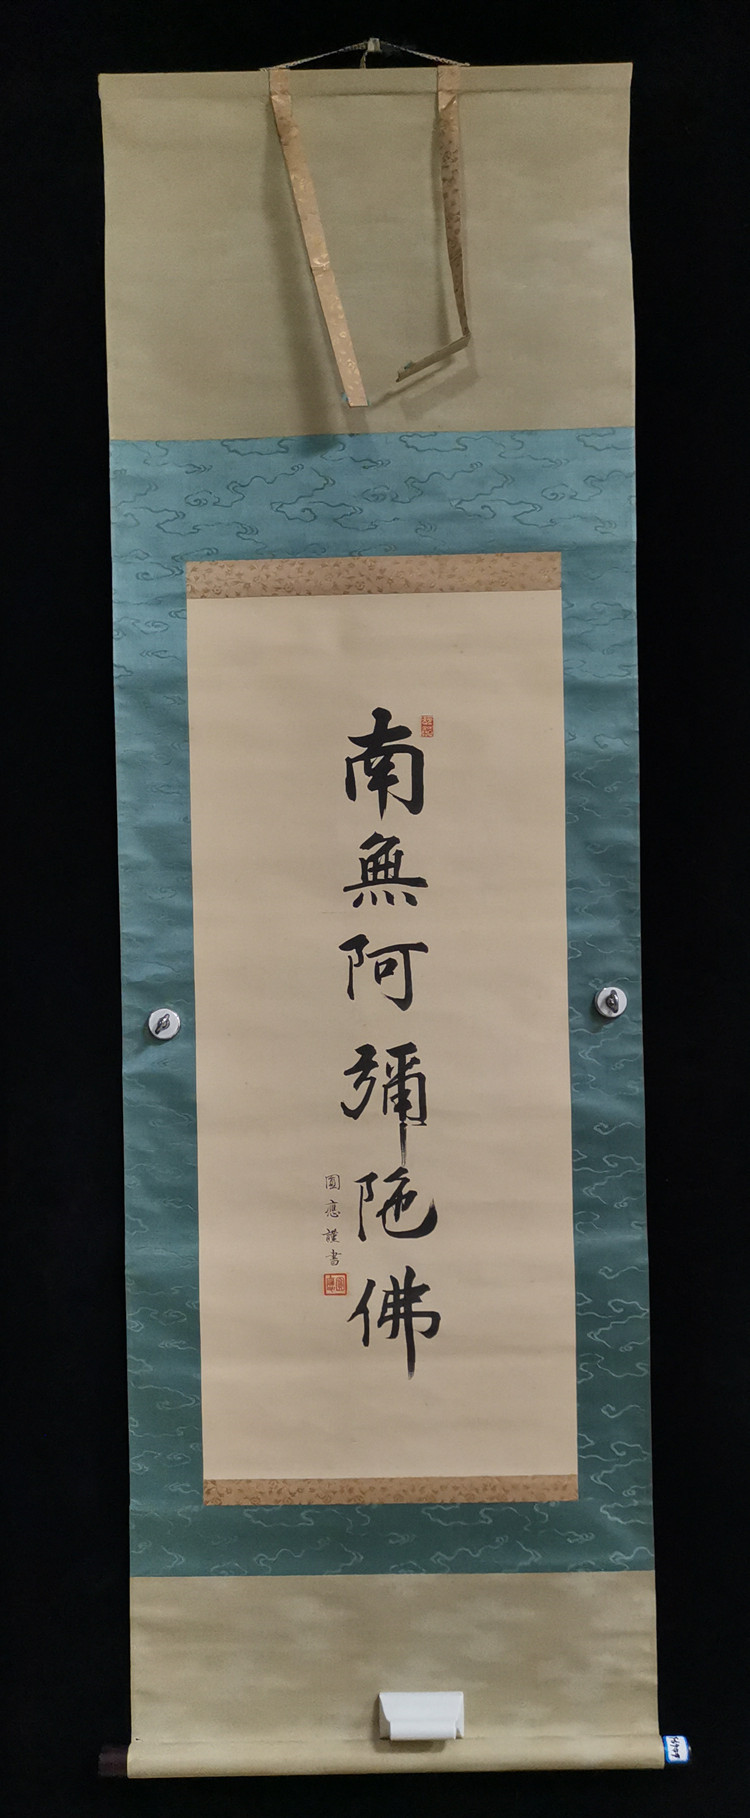 南無阿彌陀佛
圓應謹書